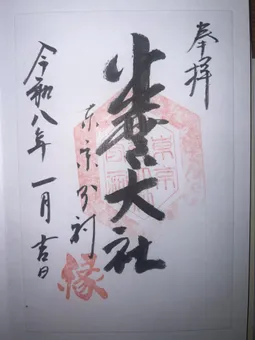 奉拝
出雲大社
東京分祠
縁
令和八年一月吉日